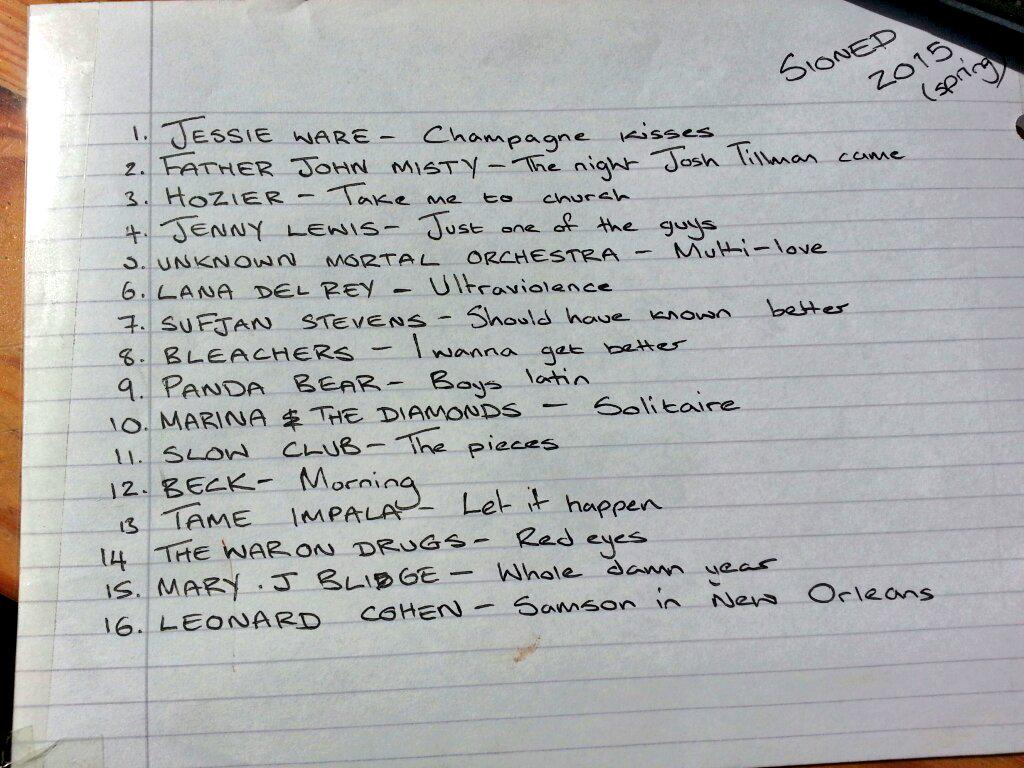 SIONED
2015
(spring)
1. JESSIE WARE - Champagne kisses
2. FATHER JOHN MISTY - The night Josh Tillman came
3. HOZIER - Take me to church
4. JENNY LEWIS - Just one of the guys
5. UNKNOWN MORTAL ORCHESTRA - Multi-love
6. LANA DEL REY - Ultraviolence
7. SUFJAN STEVENS - Should have known better
8. BLEACHERS - I wanna get better
9. PANDA BEAR - Boys latin
10. MARINA & THE DIAMONDS - Solitaire
11. SLOW CLUB - The pieces
12. BECK - Morning
13 TAME IMPALA - Let it happen
14 THE WAR ON DRUGS - Red eyes
15. MARY.J BLIDGE - Whole damn year
16. LEONARD COHEN - Samson in New Orleans